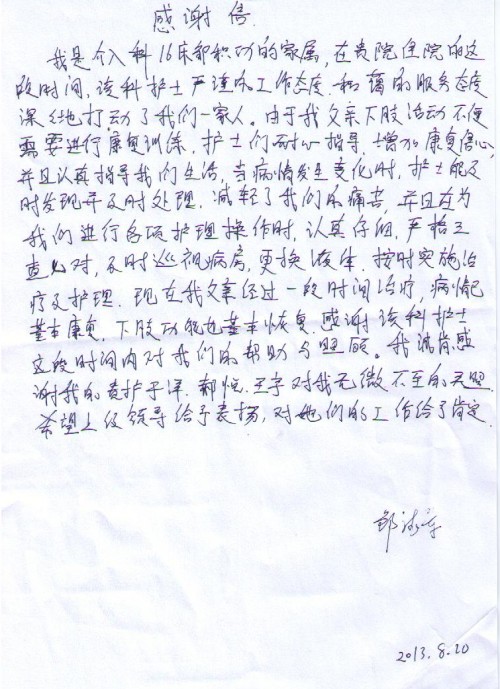 感谢信
我是介入科16床郭积功的家属,在贵院住院的这
段时间,该科护士严谨的工作态度和蔼的服务态度
深深地打动了我们一家人。由于我父亲下肢活动不便
需要进行康复训练,护士们耐心指导,增加康复信心,
并且认真指导我们生活,当病情发生变化时,护士能及
时发现并及时处理,减轻了我们的痛苦,并且在为
我们进行各项护理操作时,认真仔细,严格三
查七对,及时巡视病房,更换液体,按时实施治
疗及护理,现在我父亲经过一段时间治疗,病情已
基本康复,下肢功能也基本恢复,感谢该科护士
这段时间内对我们的帮助与照顾。我诚肯感
谢我的责护于洋、郝悦、王宇对我无微不至的关照
希望上级领导给予表扬,对她们的工作给了肯定
2013.8.20